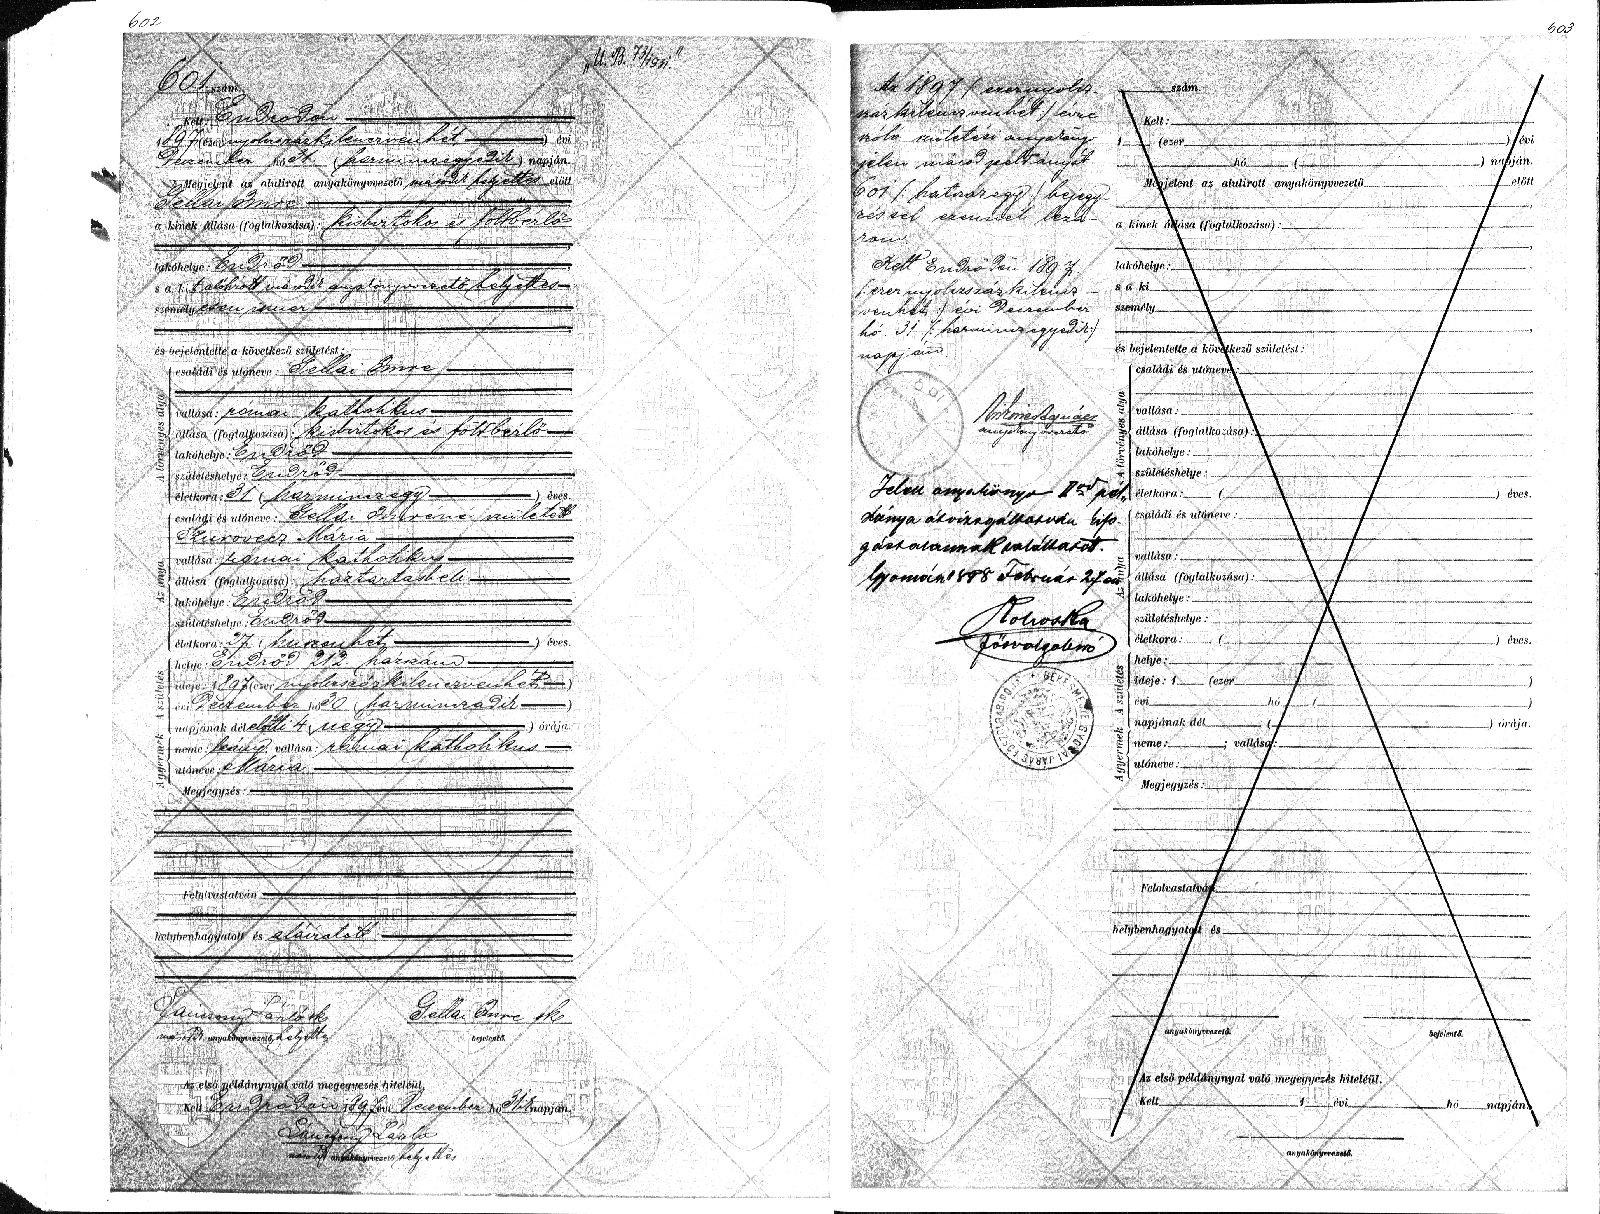 602
„U. B. 73/1931."
601 szám.
Kelt: Endrődön
1897 (ezer nyolcszázkilenczvenhét) évi
December hó 31 (harminczegyedik) napján.
Megjelent az alulirott anyakönyvvezető másodr helyettes előtt
Gellai Imre
a kinek állása (foglalkozása): kisbirtokos és földbérlő
lakóhelye: Endrőd
s a k
anyakönyvvezető helyettes
személyesen ismer
és bejelentette a következő születést:
A törvényes atya
családi és utóneve: Gellai Imre
vallása: római katholikus
állása (foglalkozása): kisbirtokos és földbérlő
lakóhelye: Endrőd
születéshelye: Endrőd
életkora: 31 (harminczegy) éves.
Az anya
családi és utóneve: Gellai Imréné született
Mária
vallása: római katholikus
állása (foglalkozása): háztartásbeli
lakóhelye: Endrőd
születéshelye: Endrőd
életkora: 27 (huszonhét) éves.
A születés
helye: Endrőd 212 házszám
ideje: 1897 (ezer nyolcszázkilenczvenhét)
évi December hó 30 (harminczadik)
napjának délelőtti 4 (négy) órája.
A gyermek
neme: leány; vallása: római katholikus
utóneve: Mária
Megjegyzés:
Felolvastatván
helybenhagyatott és aláiratott
László sk
Gellai Imre sk
anyakönyvvezető helyettes
bejelentő.
Az első példánynyal való megegyezés hiteléül.
Kelt Endrődön 1897 évi December hó 31 napján.
László
anyakönyvvezető helyettes
603
Az 1897 (ezernyolcz-
százkilenczvenhét) évre
szóló születési anyakönyv
jelen másod példányát
601 (hatszázegy) bejegy-
zéssel ezennel lezá-
rom.
Kelt Endrődön 1897.
(ezernyolczszázkilencz-
venhét) évi December
hó 31 (harminczegyedik)
napján
anyakönyvvezető
Jelen anyakönyv II-od pél-
dánya átvizsgáltatván kifo-
gástalannak találtatott.
Gyomán 1898 Február 27-én
főszolgabíró
szám.
Kelt:
1 (ezer ) évi
hó ( ) napján.
Megjelent az alulirott anyakönyvvezető előtt
a kinek állása (foglalkozása):
lakóhelye:
s a ki
személy
és bejelentette a következő születést:
A törvényes atya
családi és utóneve:
vallása:
állása (foglalkozása):
lakóhelye:
születéshelye:
életkora: ( ) éves.
Az anya
családi és utóneve:
vallása:
állása (foglalkozása):
lakóhelye:
születéshelye:
életkora: ( ) éves.
A születés
helye:
ideje: 1 (ezer )
évi hó ( )
napjának dél ( ) órája.
A gyermek
neme: ; vallása:
utóneve:
Megjegyzés:
Felolvastatván
helybenhagyatott és
anyakönyvvezető.
bejelentő.
Az első példánynyal való megegyezés hiteléül.
Kelt 1 évi hó napján.
anyakönyvvezető.